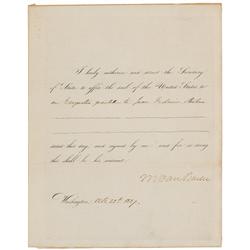 I hereby authorize and direct the Secretary
of State to affix the seal of the United States to
an Exequatur
dated this day, and signed by me and for so doing
this shall be his warrant.
M Van Buren
Washington, 1837.